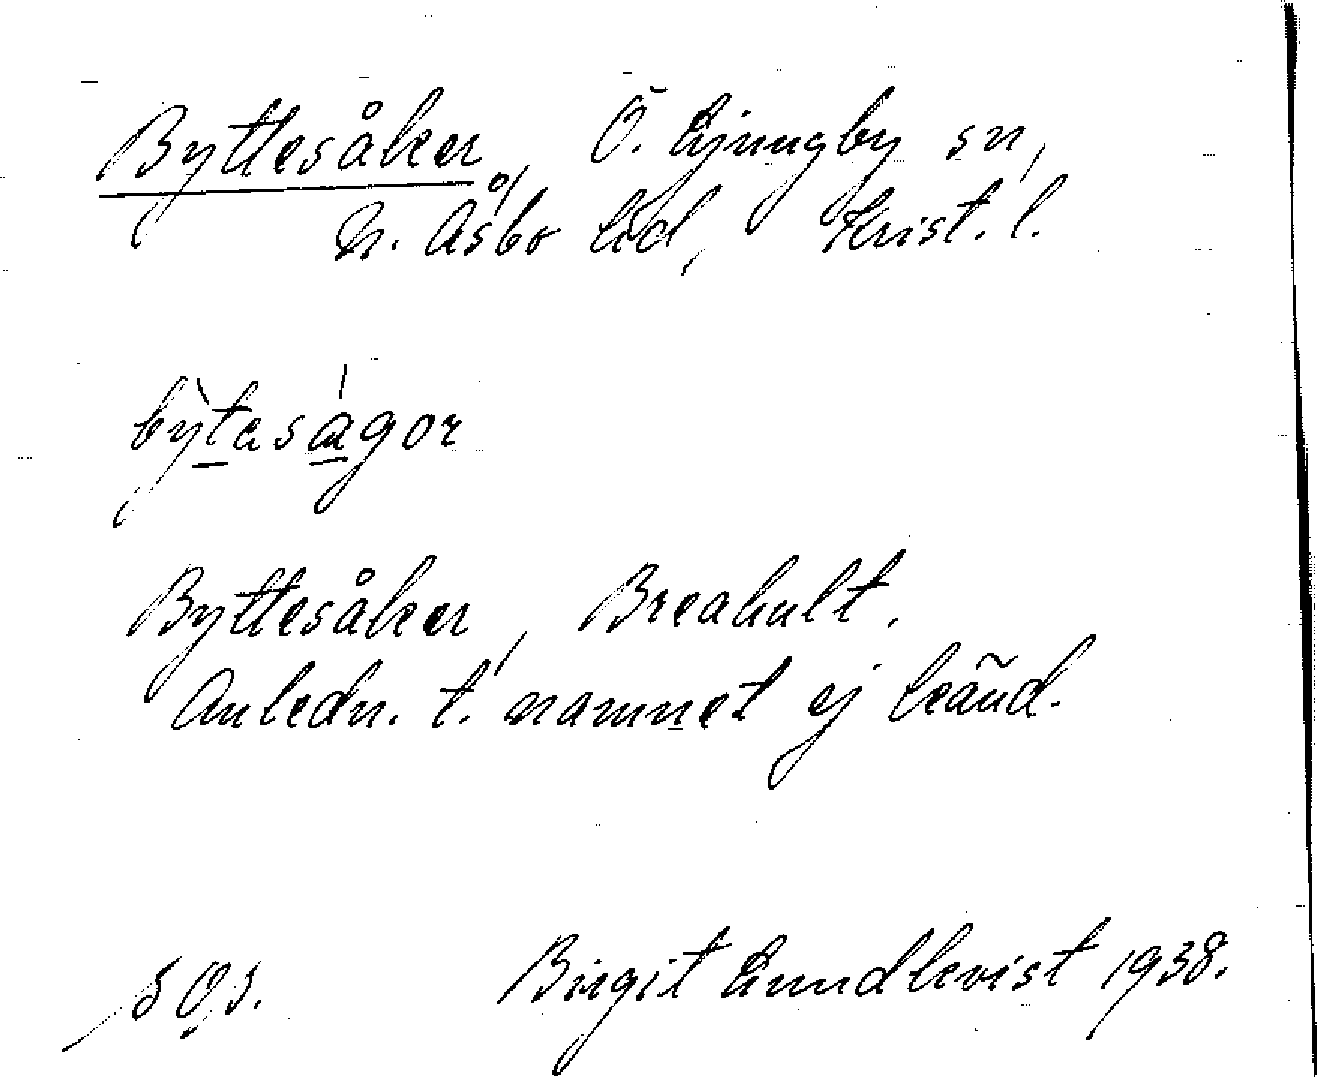 Byttesåker, Ö. Ljungby sn,
N. Åsbo hd, Krist. l.
bỳtaságor
Byttesåker, Breahult.
Anledn. t. namnet ej känd.
Birgit Lundkvist 1938.